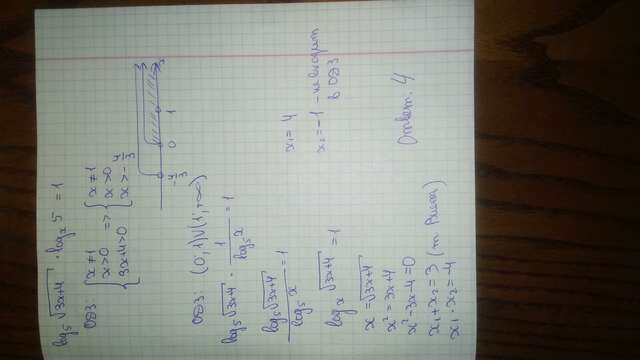 log₅√(3x+4) · logₓ5 = 1
ОДЗ { x≠1 x>0 3x+4>0 => { x≠1 x>0 x>-4/3
-4/3 0 1 x
ОДЗ: (0;1)∪(1;+∞)
log₅√(3x+4) · 1/log₅x = 1
log₅√(3x+4)/log₅x = 1
logₓ√(3x+4) = 1
x=√(3x+4)
x²=3x+4
x²-3x-4=0
x₁+x₂=3 (т Виета)
x₁·x₂=-4
x₁=4
x₂=-1 - не входит
в ОДЗ
Ответ: 4